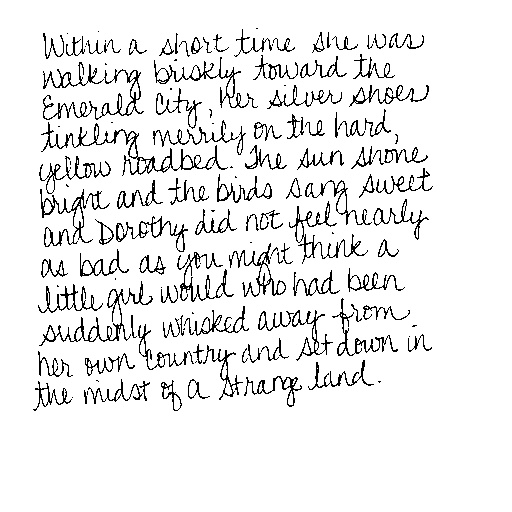 Within a short time she was
walking briskly toward the
Emerald City, her silver shoes
tinkling merrily on the hard,
yellow roadbed. The sun shone
bright and the birds sang sweet
and Dorothy did not feel nearly
as bad as you might think a
little girl would who had been
suddenly whisked away from
her own country and set down in
the midst of a strange land.